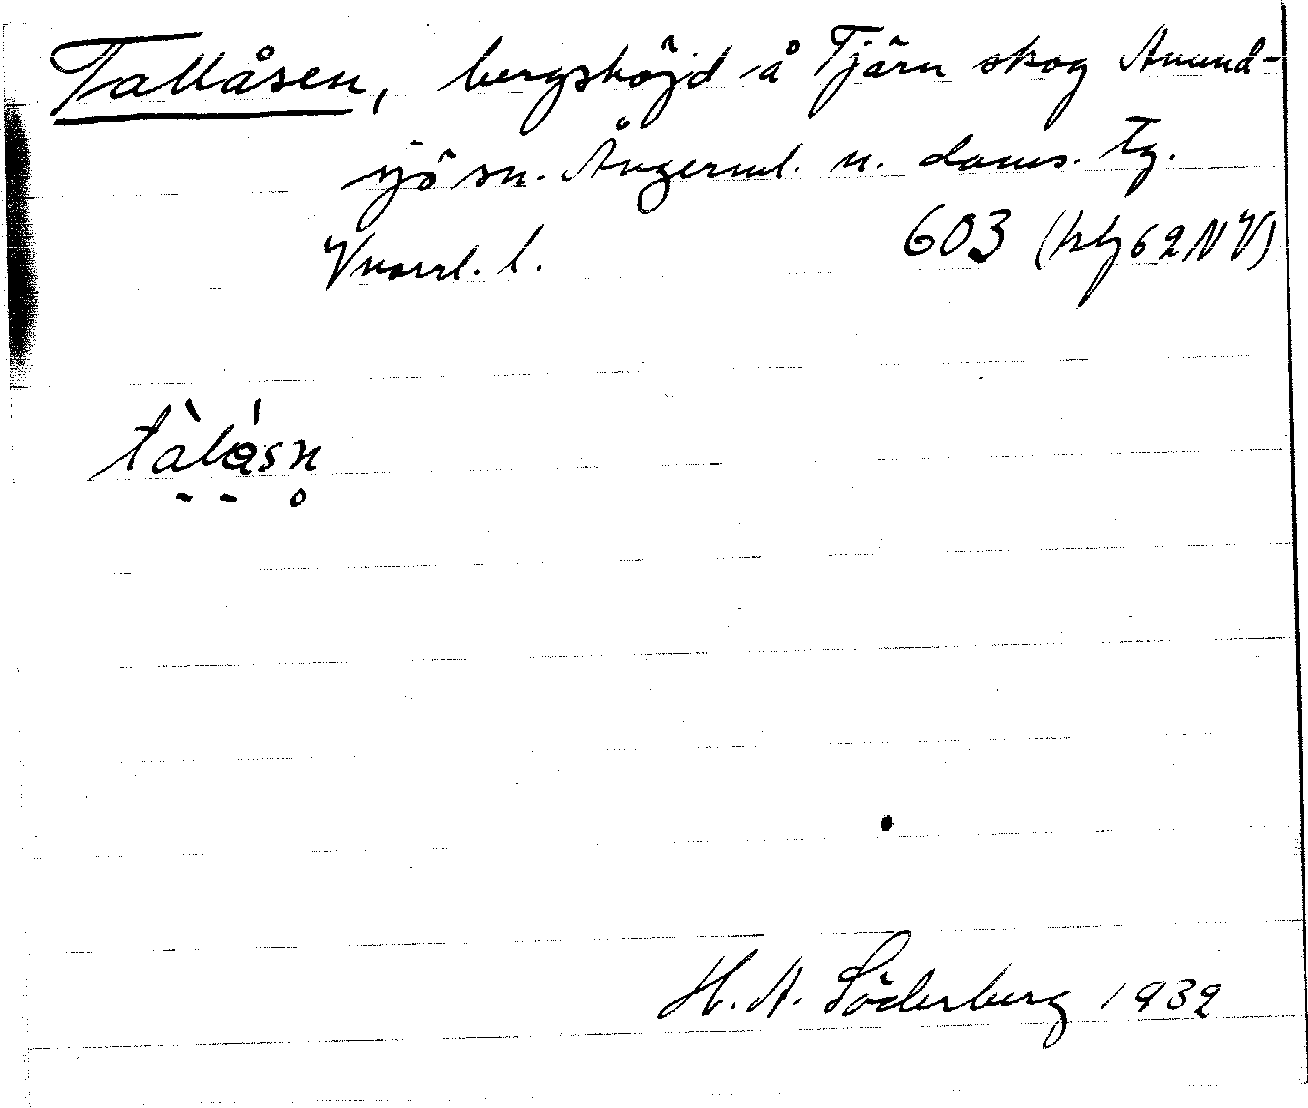 Tallåsen, bergshöjd å Tjärn skog Anund-
sjö sn. Ångerml. n. doms. tg.
Vnorrl. l. 603 (kbl 62 NV)
tàlásn̥
H. A. Söderberg 1932